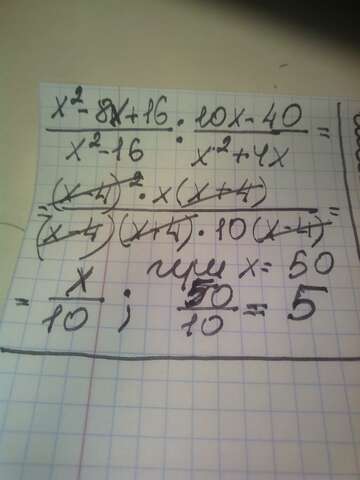 x²-8x+16/x²-16 : 10x-40/x²+4x =
= (x-4)² · x(x+4)/(x-4)(x+4) · 10(x-4) =
при x = 50
= x/10 ; 50/10 = 5